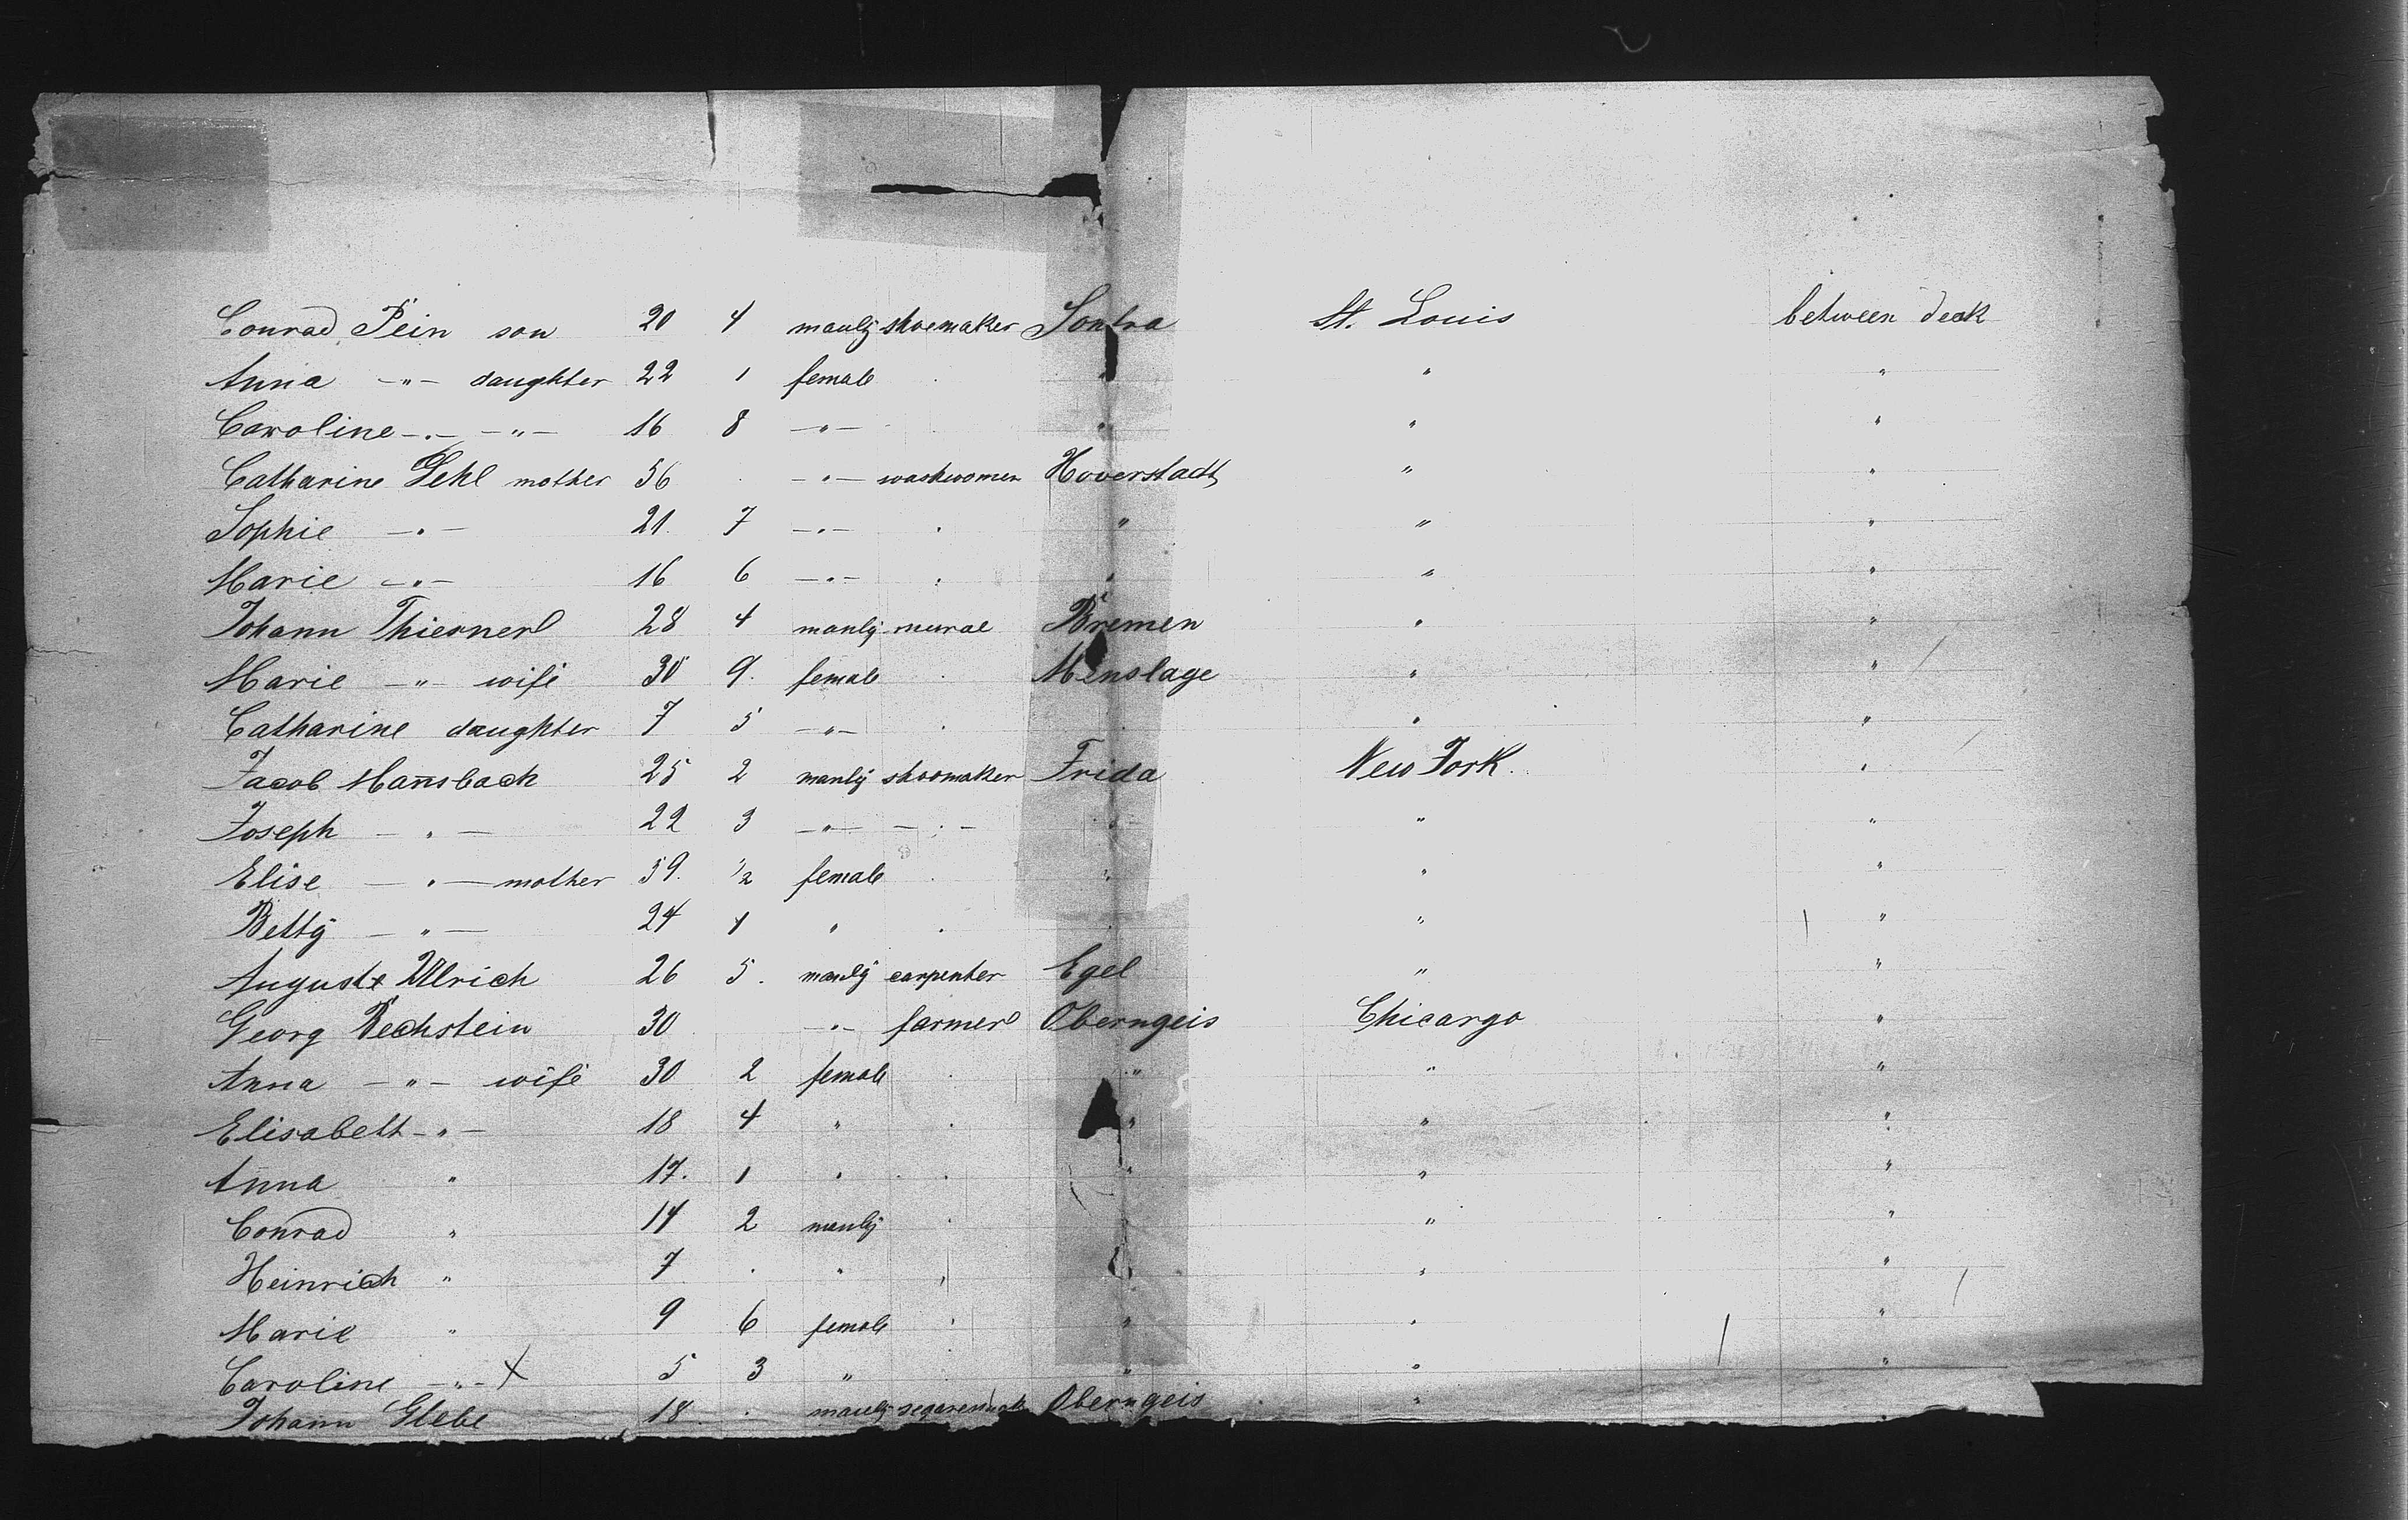 Conrad Pein son 20 4 manly shoemaker Sontra St. Louis between deck
Anna -"- daughter 22 1 female " " "
Caroline -"- -"- 16 8 -"- " " "
Catharine Gehl mother 56 -"- washwomen Hoverstadt " "
Sophie -"- 21. 7 -"- " " "
Marie -"- 16 6 -"- " " "
Johann Thiesner 28 4 manly Bremen " "
Marie -"- wife 30 9. female Menslage " "
Catharine daughter 7 5 -"- " "
Jacob Mansbach 25 2 manly shoemaker Frida New York. "
Joseph -"- 22 3 -"- -"- " " "
Elise -"- mother 59. 1/2 female " " "
Betty -"- 24 1 " " "
Auguste Ulrich 26 5. manly carpenter Egel " "
Georg Bechstein 30 -"- farmer Oberngeis Chicargo "
Anna -"- wife 30 2 female " " "
Elisabett -"- 18 4 " " " "
Anna " 17. 1 " " " "
Conrad " 14 2 manly " "
Heinrich " 7 " " "
Marie " 9 6 female " " "
Caroline -"- X 5 3 " " " "
Johann Glebe 18. manly Oberngeis "